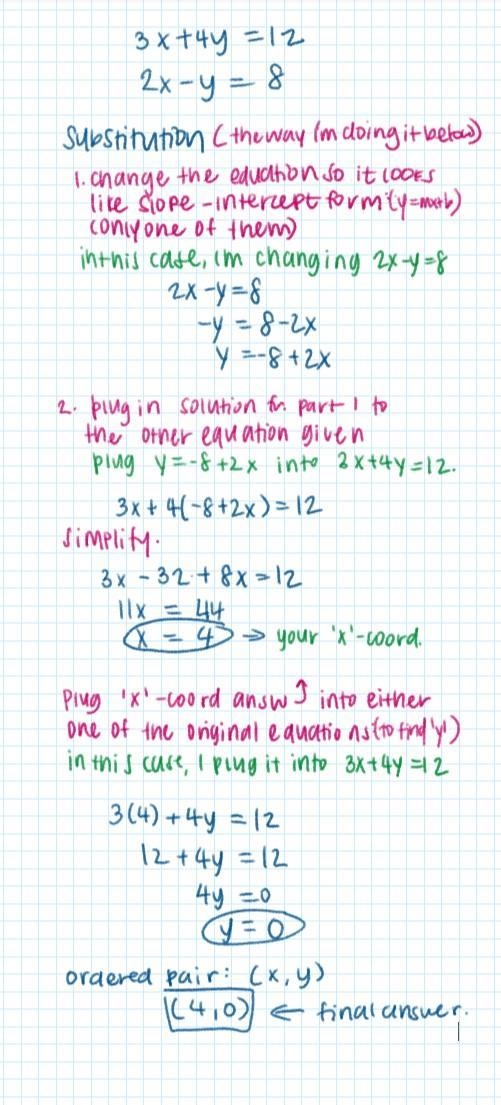 3x+4y = 12
2x-y = 8
Substitution (the way I'm doing it below)
1. change the equation so it looks
like slope-intercept form (y=mx+b)
(only one of them)
in this case, I'm changing 2x-y=8
2x-y=8
-y = 8-2x
y = -8+2x
2. plug in solution fr. part 1 to
the other equation given
plug y=-8+2x into 3x+4y=12.
3x + 4(-8+2x) = 12
simplify.
3x - 32 + 8x = 12
11x = 44
x = 4 → your 'x'-coord.
Plug 'x'-coord answ ↑ into either
one of the original equations (to find 'y')
in this case, I plug it into 3x+4y=12
3(4)+4y = 12
12+4y = 12
4y = 0
y = 0
ordered pair: (x,y)
(4,0) ← final answer.